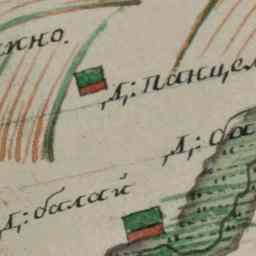 жно.
Д: Панцел
Д: оа
Д: балай